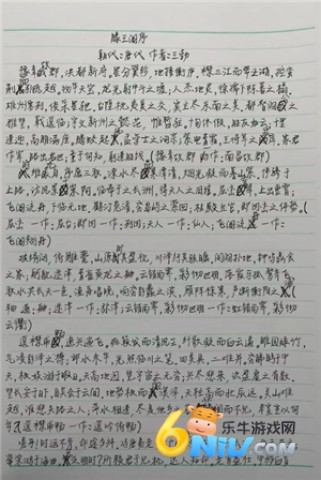 滕王阁序
朝代:唐代 作者:王勃
豫章故郡，洪都新府。星分翼轸，地接衡庐。襟三江而带五湖，控蛮
荆而引瓯越。物华天宝，龙光射牛斗之墟；人杰地灵，徐孺下陈蕃之榻。
雄州雾列，俊采星驰。台隍枕夷夏之交，宾主尽东南之美。都督阎公之
雅望，棨戟遥临；宇文新州之懿范，襜帷暂驻。十旬休假，胜友如云；千里
逢迎，高朋满座。腾蛟起凤，孟学士之词宗；紫电青霜，王将军之武库。家君
作宰，路出名区；童子何知，躬逢胜饯。(豫章故郡 一作：南昌故郡)
时维九月，序属三秋。潦水尽而寒潭清，烟光凝而暮山紫。俨骖騑于
上路，访风景于崇阿。临帝子之长洲，得天人之旧馆。层峦耸翠，上出重霄；
飞阁流丹，下临无地。鹤汀凫渚，穷岛屿之萦回；桂殿兰宫，即冈峦之体势。(
层峦 一作：层台；即冈 一作：列冈；天人 一作：仙人；飞阁流丹 一作：
飞阁翔丹)
披绣闼，俯雕甍，山原旷其盈视，川泽纡其骇瞩。闾阎扑地，钟鸣鼎食
之家；舸舰迷津，青雀黄龙之舳。云销雨霁，彩彻区明。落霞与孤鹜齐飞，
秋水共长天一色。渔舟唱晚，响穷彭蠡之滨，雁阵惊寒，声断衡阳之浦。(
轴 通：舳；迷津 一作：弥津；云销雨霁，彩彻区明 一作：虹销雨霁，彩彻
云衢)
遥襟甫畅，逸兴遄飞。爽籁发而清风生，纤歌凝而白云遏。睢园绿竹，
气凌彭泽之樽；邺水朱华，光照临川之笔。四美具，二难并。穷睇眄于中
天，极娱游于暇日。天高地迥，觉宇宙之无穷；兴尽悲来，识盈虚之有数。
望长安于日下，目吴会于云间。地势极而南溟深，天柱高而北辰远。关山难
越，谁悲失路之人；萍水相逢，尽是他乡之客。
(遥襟甫畅 一作：遥吟俯畅)
6niu.com
乐牛游戏网